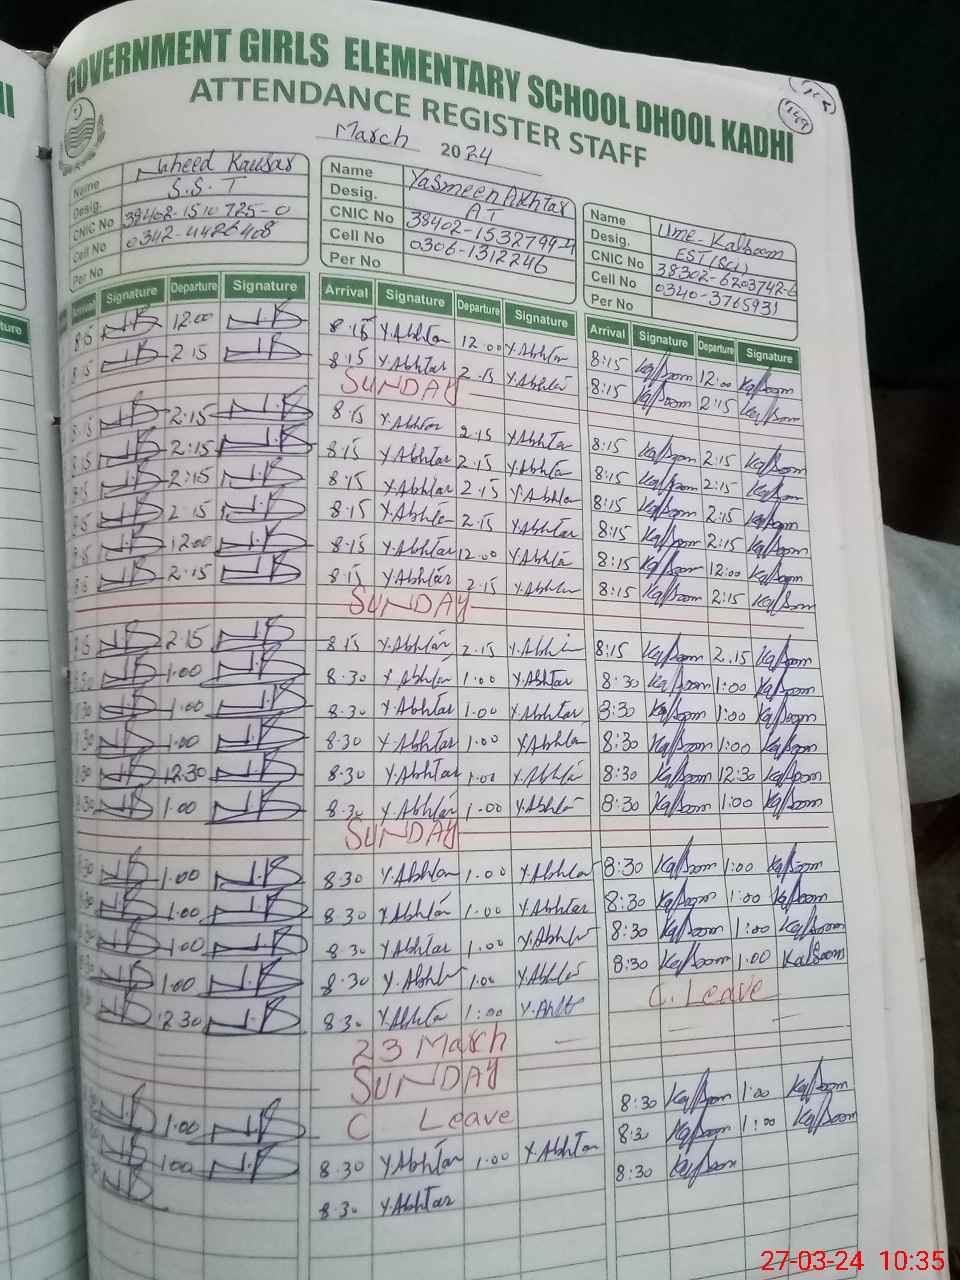 GOVERNMENT GIRLS ELEMENTARY SCHOOL DHOOL KADHI
ATTENDANCE REGISTER STAFF
March 2024
Name Naheed Kausar
Desig. S.S.T
CNIC No 38402-1510725-0
Cell No 0342-4426408
Per No
Name Yasmeen Akhtar
Desig. AT
CNIC No 38402-1532799-4
Cell No 0306-1312246
Per No
Name Ume-Kalsoom
Desig. EST (Sci)
CNIC No 38302-6203742-6
Cell No 0340-3765931
Per No
Arrival Signature Departure Signature Arrival Signature Departure Signature Arrival Signature Departure Signature
8:15 N.B 12:00 N.B 8:15 Y.Akhtar 12:00 Y.Akhtar 8:15 Kalsoom 12:00 Kalsoom
8:15 N.B 2:15 N.B 8:15 Y.Akhtar 2:15 Y.Akhtar 8:15 Kalsoom 2:15 Kalsoom
SUNDAY
8:15 N.B 2:15 N.B 8:15 Y.Akhtar 2:15 Y.Akhtar 8:15 Kalsoom 2:15 Kalsoom
8:15 N.B 2:15 N.B 8:15 Y.Akhtar 2:15 Y.Akhtar 8:15 Kalsoom 2:15 Kalsoom
8:15 N.B 2:15 N.B 8:15 Y.Akhtar 2:15 Y.Akhtar 8:15 Kalsoom 2:15 Kalsoom
8:15 N.B 2:15 N.B 8:15 Y.Akhtar 2:15 Y.Akhtar 8:15 Kalsoom 2:15 Kalsoom
8:15 N.B 12:00 N.B 8:15 Y.Akhtar 12:00 Y.Akhtar 8:15 Kalsoom 12:00 Kalsoom
8:15 N.B 2:15 N.B 8:15 Y.Akhtar 2:15 Y.Akhtar 8:15 Kalsoom 2:15 Kalsoom
SUNDAY
8:15 N.B 2:15 N.B 8:15 Y.Akhtar 2:15 Y.Akhtar 8:15 Kalsoom 2:15 Kalsoom
8:30 N.B 1:00 N.B 8:30 Y.Akhtar 1:00 Y.Akhtar 8:30 Kalsoom 1:00 Kalsoom
8:30 N.B 1:00 N.B 8:30 Y.Akhtar 1:00 Y.Akhtar 8:30 Kalsoom 1:00 Kalsoom
8:30 N.B 1:00 N.B 8:30 Y.Akhtar 1:00 Y.Akhtar 8:30 Kalsoom 1:00 Kalsoom
8:30 N.B 12:30 N.B 8:30 Y.Akhtar 1:00 Y.Akhtar 8:30 Kalsoom 12:30 Kalsoom
8:30 N.B 1:00 N.B 8:30 Y.Akhtar 1:00 Y.Akhtar 8:30 Kalsoom 1:00 Kalsoom
SUNDAY
8:30 N.B 1:00 N.B 8:30 Y.Akhtar 1:00 Y.Akhtar 8:30 Kalsoom 1:00 Kalsoom
8:30 N.B 1:00 N.B 8:30 Y.Akhtar 1:00 Y.Akhtar 8:30 Kalsoom 1:00 Kalsoom
8:30 N.B 1:00 N.B 8:30 Y.Akhtar 1:00 Y.Akhtar 8:30 Kalsoom 1:00 Kalsoom
8:30 N.B 1:00 N.B 8:30 Y.Akhtar 1:00 Y.Akhtar 8:30 Kalsoom 1:00 Kalsoom
N.B 12:30 N.B 8:30 Y.Akhtar 1:00 Y.Akht C. Leave
23 March
SUNDAY
N.B 1:00 N.B C Leave 8:30 Kalsoom 1:00 Kalsoom
N.B 1:00 N.B 8:30 Y.Akhtar 1:00 Y.Akhtar 8:30 Kalsoom 1:00 Kalsoom
N.B 8:30 Y.Akhtar 8:30 Kalsoom
27-03-24 10:35